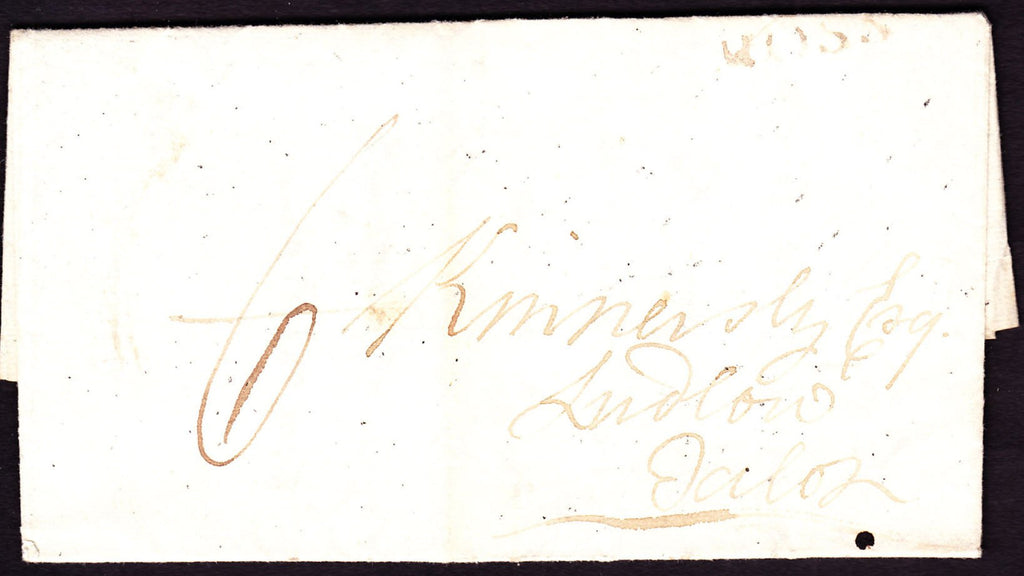 6
Kinnersly Esq.
Ludlow
Salop